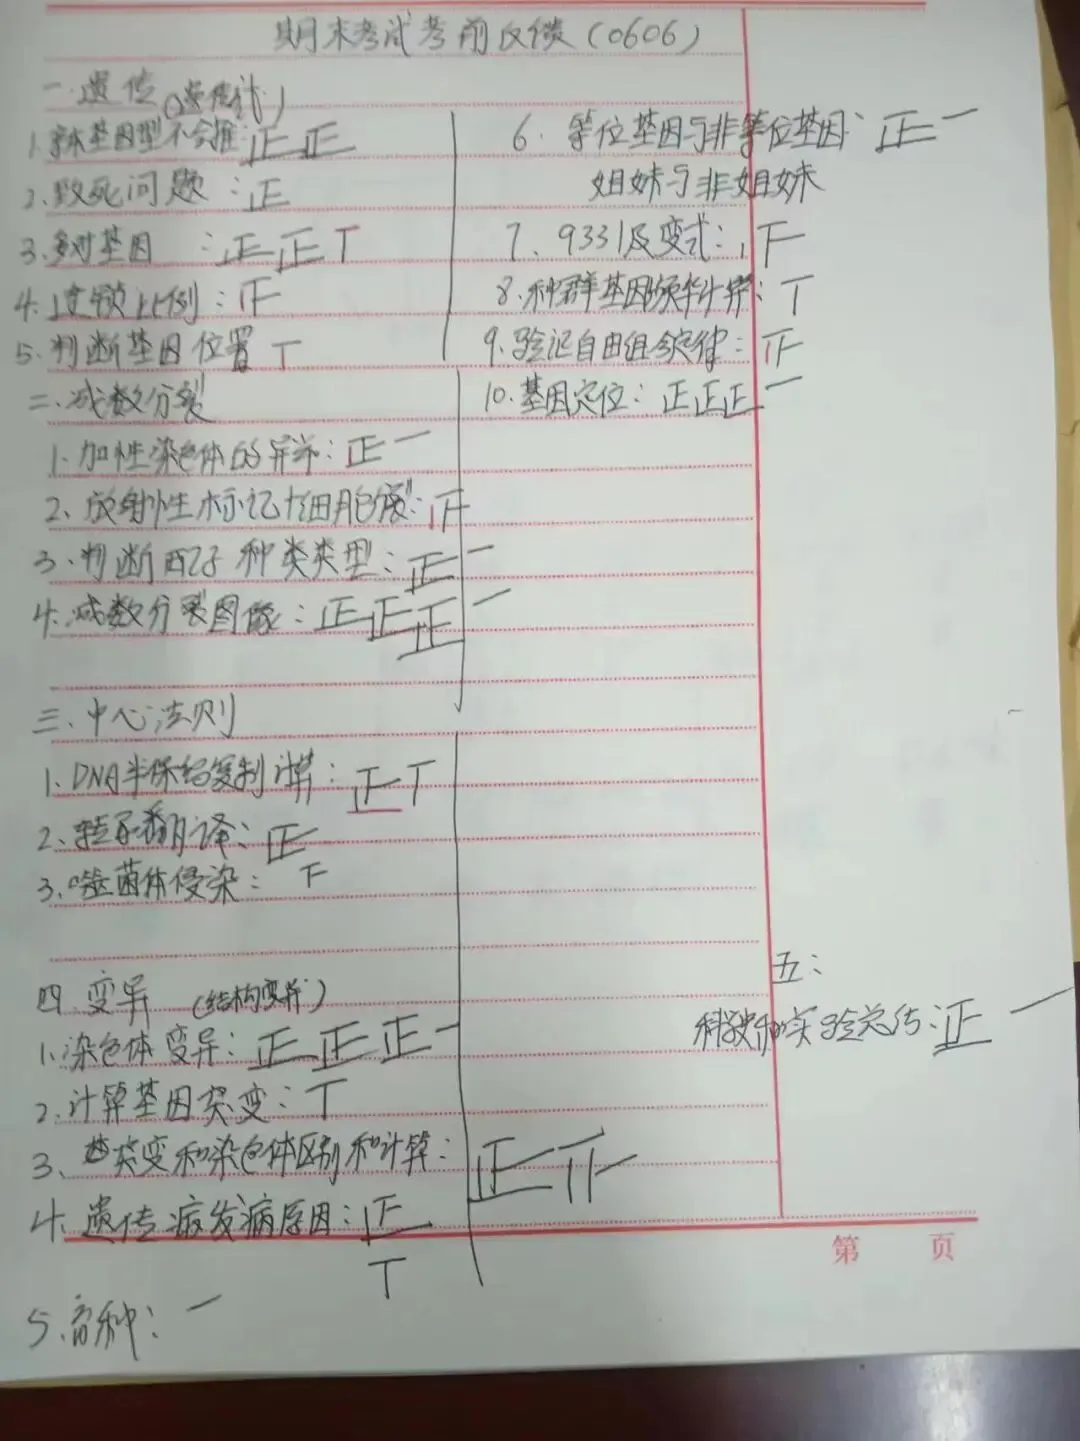 期末考试考前反馈(0606)
一.遗传
1.亲本基因型不会推:正正
2.致死问题:正
3.多对基因:正正T
4.连锁比例:
5.判断基因位置 T
6.等位基因与非等位基因:正一
姐妹与非姐妹
7、9331及变式:
8.种群基因频率计算:T
9.验证自由组合定律:
10.基因定位:正正正一
二.减数分裂
1.加性染色体的异常:正一
2、放射性标记细胞分裂:
3.判断配子种类类型:正一
4.减数分裂图像:正正正一
三.中心法则
1.DNA半保留复制计算:正T
2.转录翻译:正
3.噬菌体侵染:下
四.变异(结构变异)
1.染色体变异:正正正一
2.计算基因突变:T
3、基突变和染色体区别和计算:正
4.遗传病发病原因:正
T
5.育种:一
五:
科学史和实验总结:正一
第 页